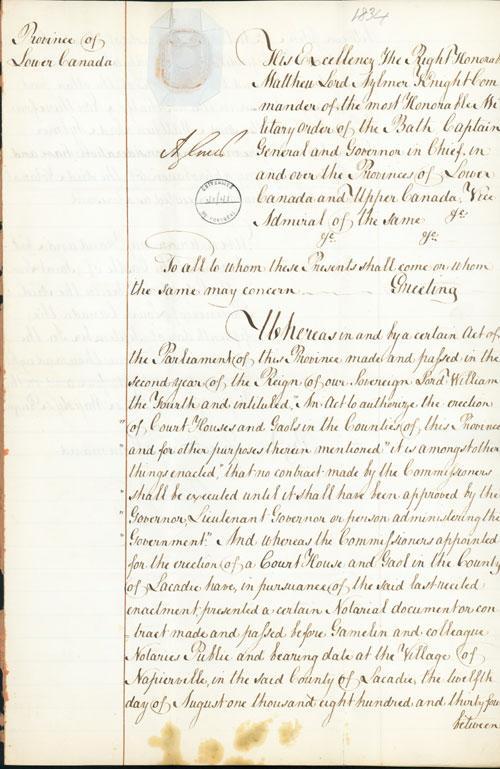 1834
Province of
Lower Canada
His Excellency The Right Honorable
Matthew Lord Aylmer Knight Com
mander of the most Honorable Mi
litary order of the Bath Captain
General and Governor in Chief, in
and over the Provinces of Lower
Canada and Upper Canada, Vice
Admiral of the same &c
&c &c
Aylmer
To all to whom these Presents shall come or whom
the same may concern Greeting
Whereas in and by a certain Act of
the Parliament of this Province made and passed in the
second year of the Reign of our Sovereign Lord William
the Fourth and intituled, "An Act to authorize the erection
" of Court Houses and Gaols in the Counties of this Province
and for other purposes therein mentioned" it is amongst other
things enacted, "that no contract made by the Commissioners
" shall be executed until it shall have been approved by the
" Governor, Lieutenant Governor or person administering the
" Government." And whereas the Commissioners appointed
for the erection of a Court House and Gaol in the County
of Lacadie have, in pursuance of the said last recited
enactment presented a certain Notarial document or con
=tract made and passed before Gamelin and colleague
Notaries Public and bearing date at the Village of
Napierville, in the said County of Lacadie, the twelfth
day of August one thousand eight hundred and thirty four
between